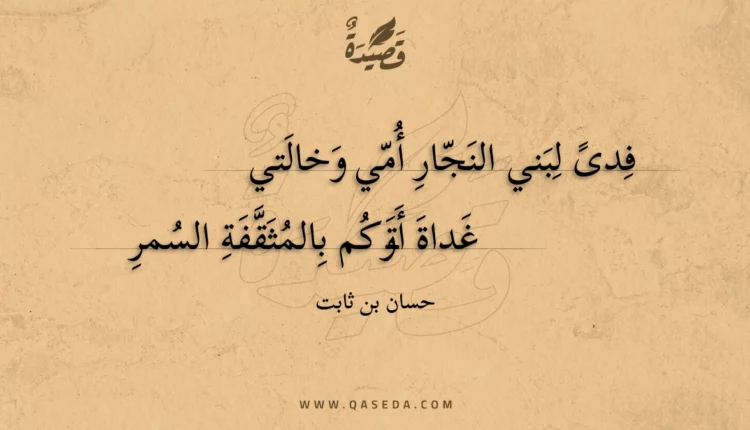 قَصِيْدَةٌ
فِدىً لِبَني النَجّارِ أُمّي وَخالَتي
غَداةَ أَتَوَكُم بِالمُثَقَّفَةِ السُمرِ
حسان بن ثابت
WWW.QASEDA.COM